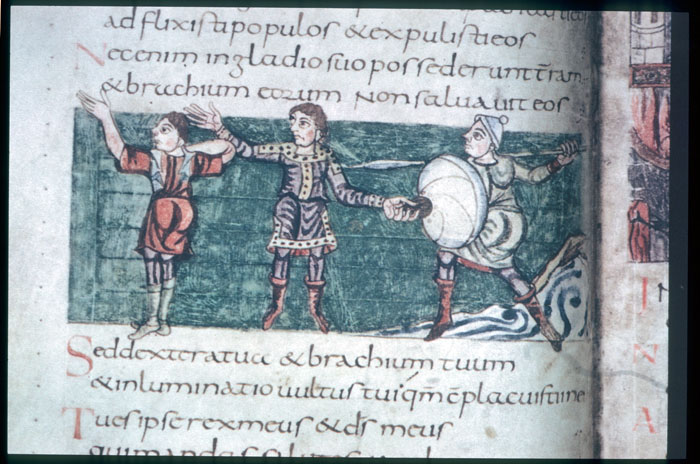 adflixisti populos & expulisti eos
Nec enim in gladio suo possederunt t̄ram
& brachium eorum Non saluauit eos
Sed dextera tua & brachium tuum
& inluminatio uultus tui qm̄ c̄placuisti in e
Tu es ipse rex meus & d̄s meus
qui mandas
I
N
A